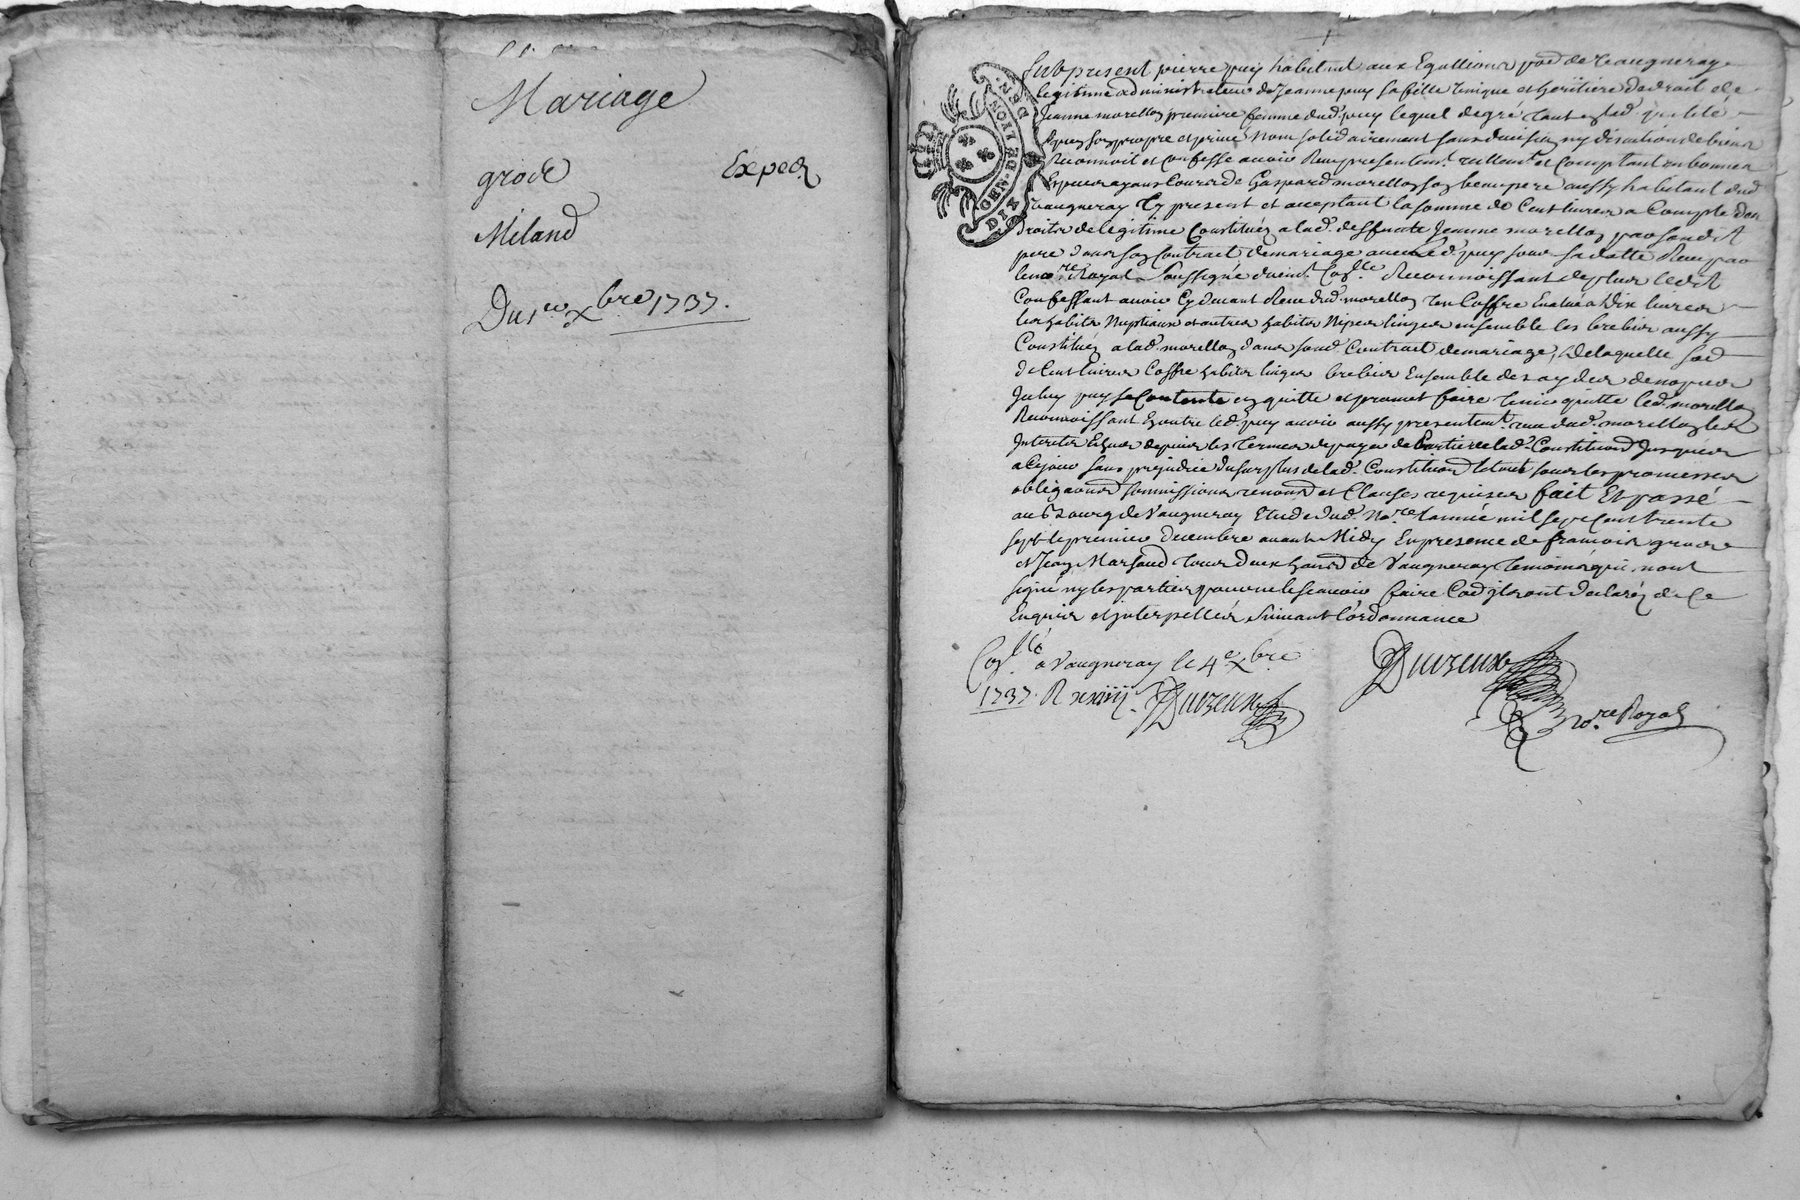 Mariage
grode Exped
Miland
Du 1er xbre 1737.
GEN. DE LYON
DIX DEN.
fut present pierre puy habitant aux Egallions parr de Vaugneray
legitime administrateur de Jeanne puy sa fille Unique et heritiere de droit de
Jeanne morellon premiere femme dud. puy lequel de gré tant en lad. qualité
Reconnoit et Confesse avoir Reçu presentemt. reellemt. et Comptant en bonnes
Especes ayans Cours de Gaspard morellon son beaupere aussy habitant dud.
Vaugneray Cy present et acceptant la somme de Cent livres a Compte des
droits de legitime Constitués a lad. deffunte Jeanne morellon par sondit
pere dans son Contract de mariage avec led. puy sous sa datte Reçu par
le nore. Royal soussigné duemt. Conllé Reconnoissant de plus ledit
Confessant avoir Cy devant Reçu dud. morellon Un Coffre Evalué a dix livres
les habits Nuptiaux et autres habits Nipes linges ensemble les brebis aussy
Constitués a lad. morellon dans sond. Contract de mariage, de laquelle sod
de Cent livres Coffre habits linges brebis Ensemble
puy se Contente en quitte et promet faire tenir quitte led. morellon
Reconnoissant En outre led. puy avoir aussy presentemt. reçu dud. morellon les
Interets Echus depuis les termes de payer de partie de lad. Constitution Jusques
a Cejour sans prejudice du surplus de lad. Constitution le tout sous les promesses
obligaons submissions renonons et Clauses requises fait Et passé
au Bourg de Vaugneray Etude dud. Nore. l'année mil sept Cent trente
sept le premier decembre avant Midy En presence de francois
et Jean Marsaud tous deux habit de Vaugneray temoins qui nont
signé ny les parties pour ne le scavoir faire Co'd ils ont declaré de Ce
Enquis et interpellés suivant l'ordonnance
Conllé a Vaugneray le 4e xbre
1737. R xxiiij s. Duvzeux
Duvzeux
nore. Royal